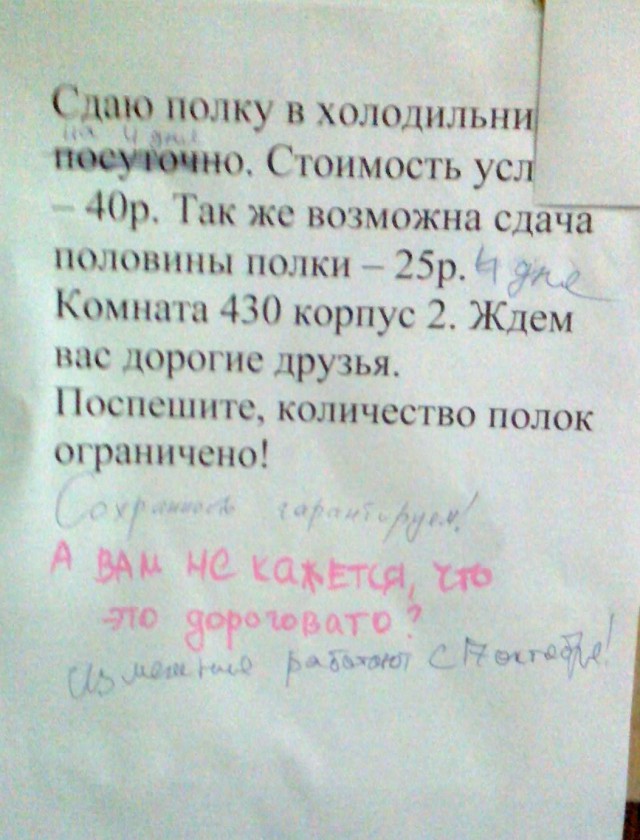 Сдаю полку в холодильни
на 4 дня
посуточно. Стоимость усл
– 40р. Так же возможна сдача
половины полки – 25р. 4 дня
Комната 430 корпус 2. Ждем
вас дорогие друзья.
Поспешите, количество полок
ограничено!
Сохранность гарантируем!
А ВАМ НЕ КАЖЕТСЯ, ЧТО
ЭТО дороговато?
Изменение работают с 17 октября!